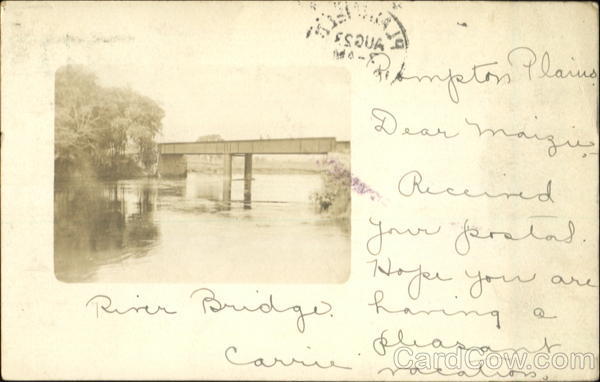 AUG 23
Pompton Plains.
Dear Maizie,-
Received
your postal.
Hope you are
having a
pleasant
vacation.
River Bridge.
Carrie
CardCow.com